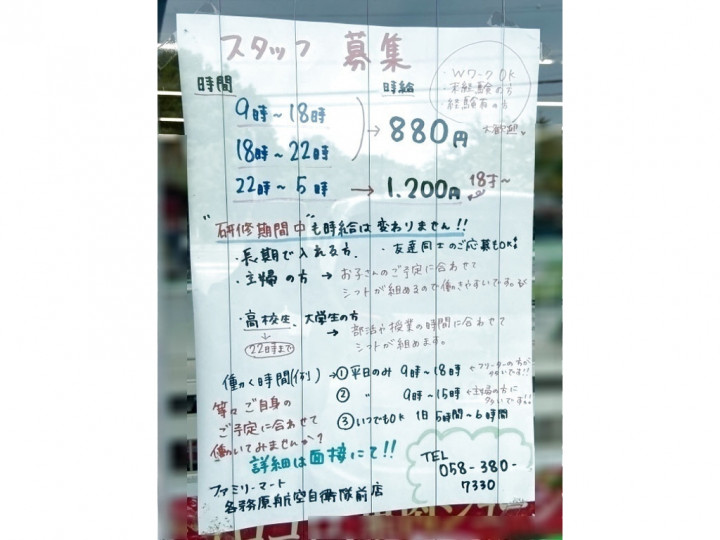 スタッフ 募集
・WワークOK
・未経験の方
・経験者の方
大歓迎
時間
時給
9時～18時
18時～22時
→ 880円
22時～5時 → 1.200円 18才～
"研修期間中"も時給は変わりません!!
・長期で入れる方。 ・友達同士のご応募もOK!
・主婦の方 → お子さんのご予定に合わせて
シフトが組めるので働きやすいです。
・高校生、大学生の方
22時まで
→ 部活や授業の時間に合わせて
シフトが組めます。
働く時間(例) → ①平日のみ 9時～18時 ←フリーターの方が多いです!!
② 〃 9時～15時 ←主婦の方に多いです!!
③いつでもOK 1日5時間～6時間
等々ご自身の
ご予定に合わせて
働いてみませんか?
詳細は面接にて!!
ファミリーマート
各務原航空自衛隊前店
TEL
058-380-
7330